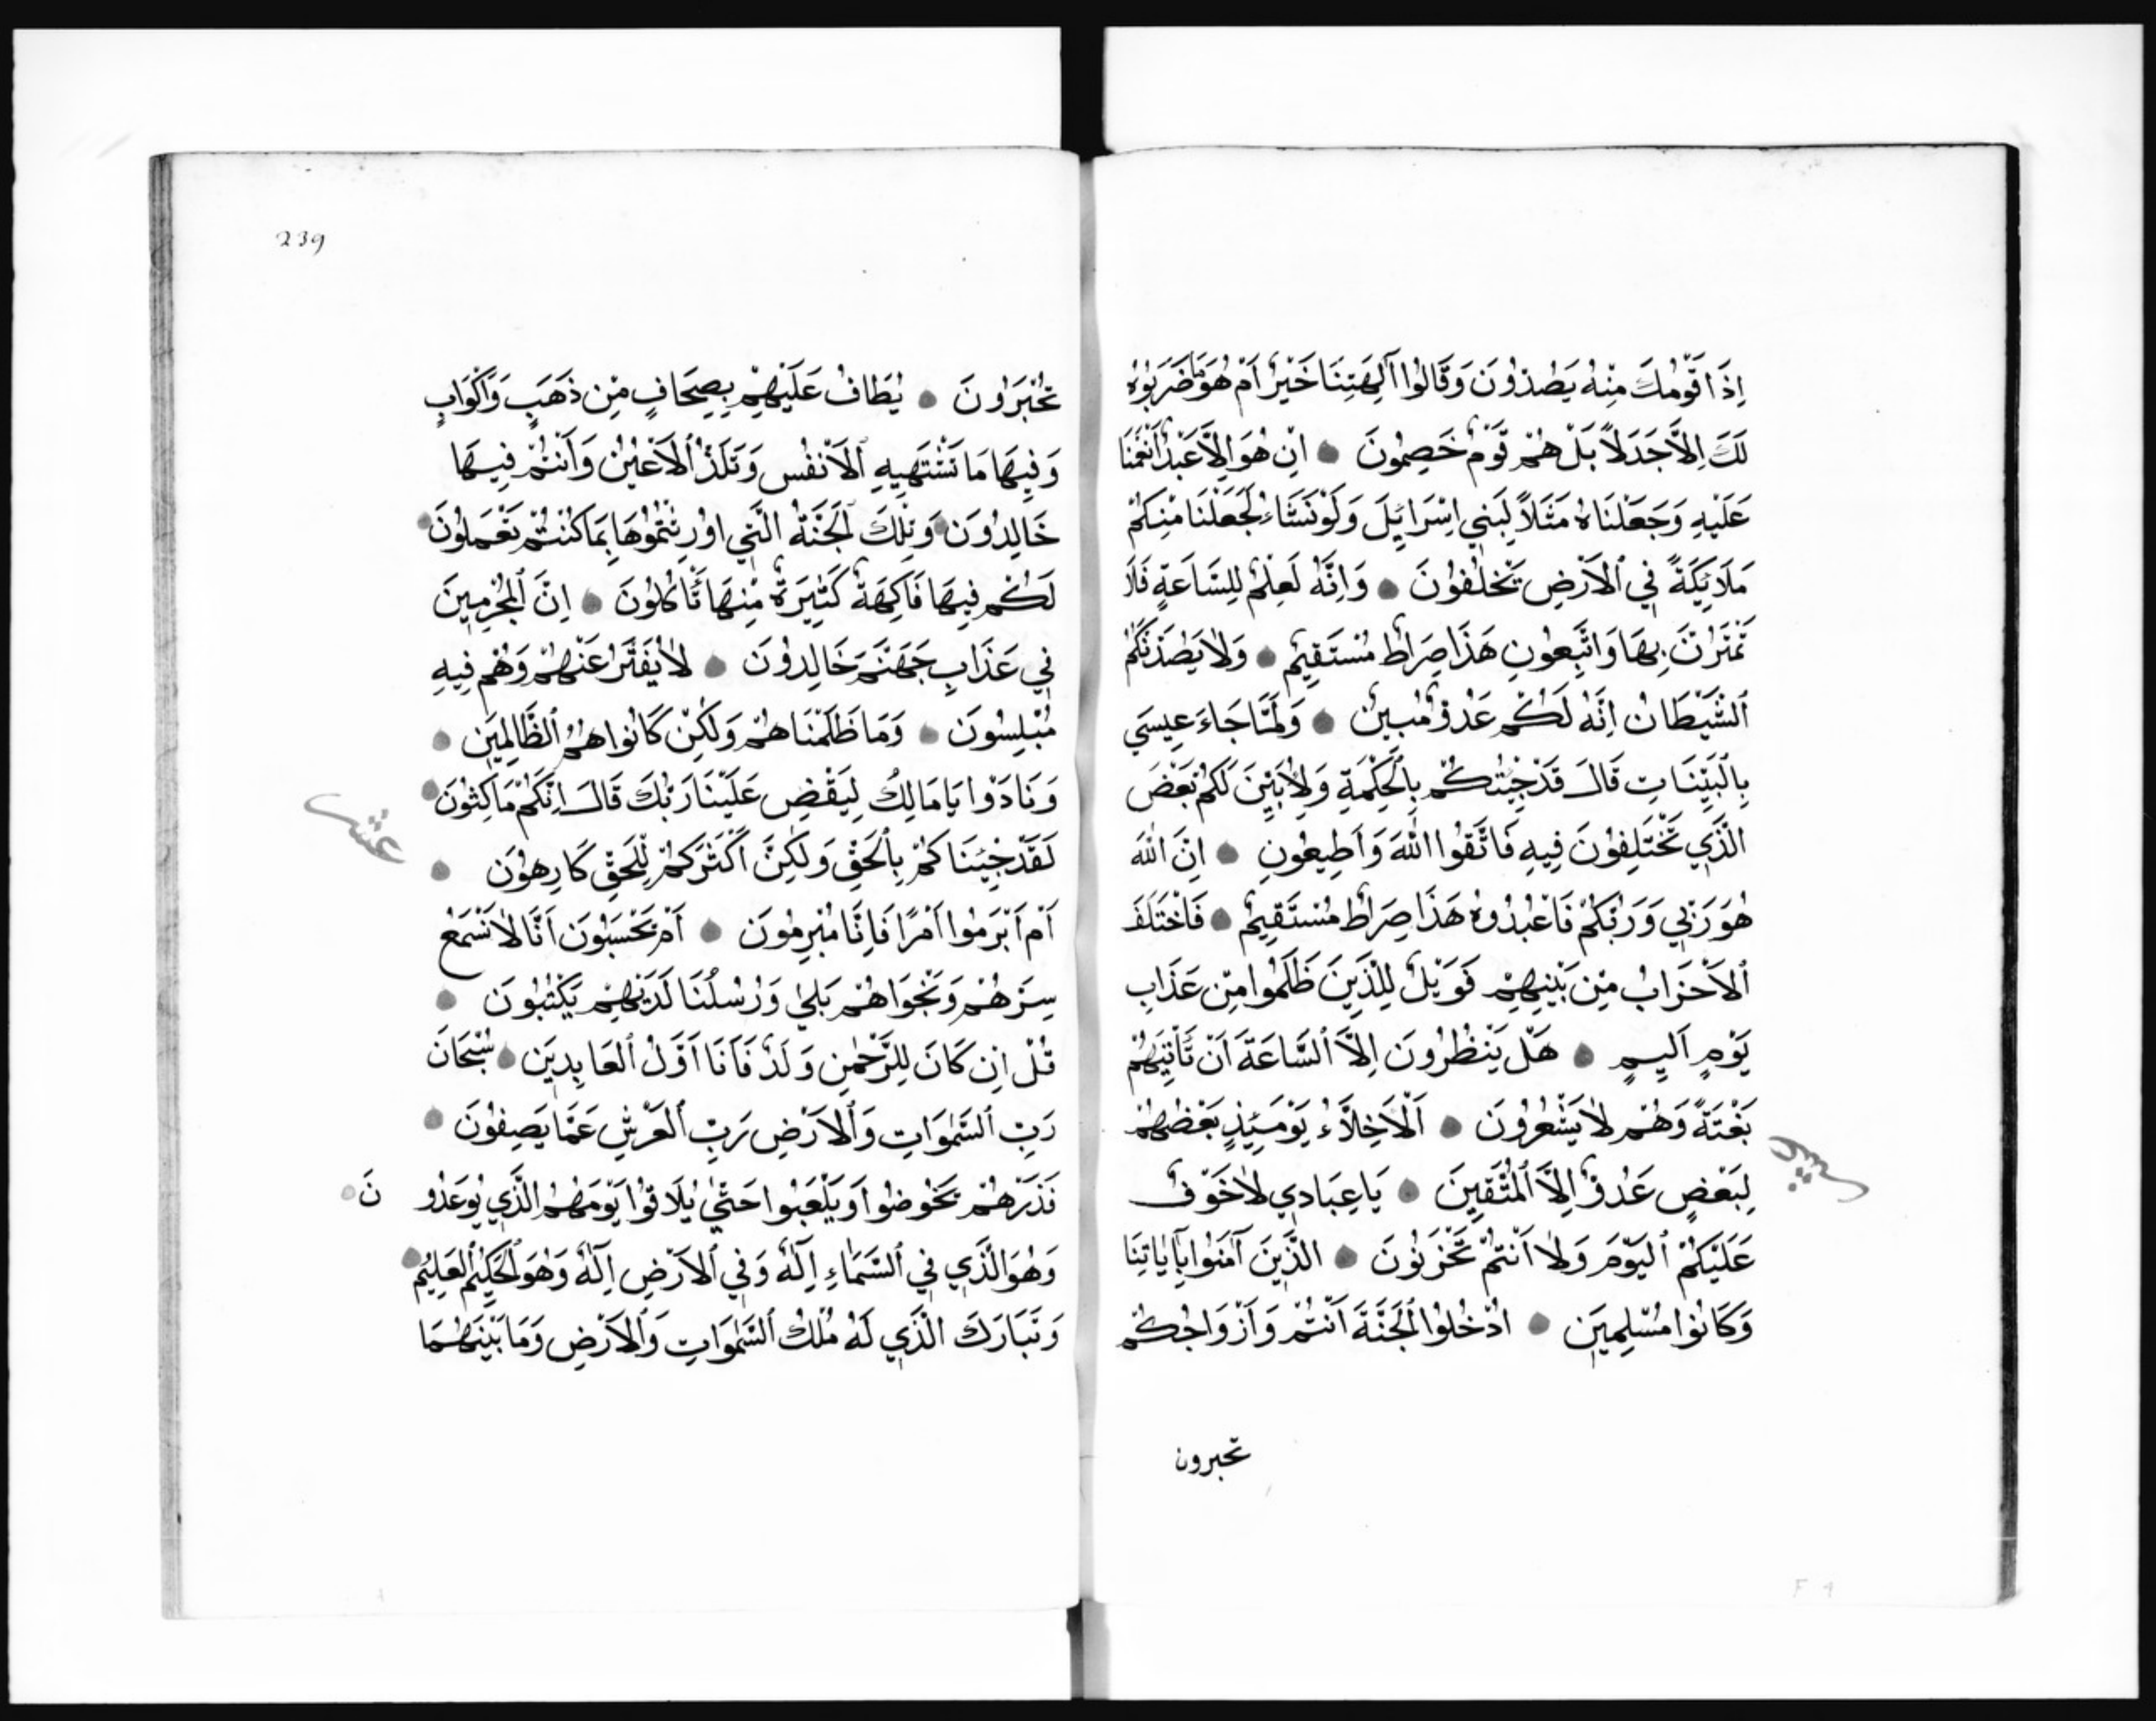 اِذَا قَوْمُكَ مِنْهُ يَصُدُّونَ وَقَالُوا آلِهَتِنَا خَيْرٌ اَمْ هُوَ مَا ضَرَبُوهُ
لَكَ اِلَّا جَدَلًا بَلْ هُمْ قَوْمٌ خَصِمُونَ اِنْ هُوَ اِلَّا عَبْدٌ اَنْعَمْنَا
عَلَيْهِ وَجَعَلْنَاهُ مَثَلًا لِبَنِي اِسْرَائِيلَ وَلَوْ نَشَاءُ لَجَعَلْنَا مِنْكُمْ
مَلَائِكَةً فِي ٱلْاَرْضِ يَخْلُفُونَ وَاِنَّهُ لَعِلْمٌ لِلسَّاعَةِ فَلَا
تَمْتَرُنَّ بِهَا وَاتَّبِعُونِ هَذَا صِرَاطٌ مُسْتَقِيمٌ وَلَا يَصُدَّنَّكُمُ
ٱلشَّيْطَانُ اِنَّهُ لَكُمْ عَدُوٌّ مُبِينٌ وَلَمَّا جَاءَ عِيسَي
بِالْبَيِّنَاتِ قَالَ قَدْ جِئْتُكُمْ بِالْحِكْمَةِ وَلِاُبَيِّنَ لَكُمْ بَعْضَ
الَّذِي تَخْتَلِفُونَ فِيهِ فَاتَّقُوا اللّٰهَ وَاَطِيعُونِ اِنَّ اللّٰهَ
هُوَ رَبِّي وَرَبُّكُمْ فَاعْبُدُوهُ هَذَا صِرَاطٌ مُسْتَقِيمٌ فَاخْتَلَفَ
ٱلْاَحْزَابُ مِنْ بَيْنِهِمْ فَوَيْلٌ لِلَّذِينَ ظَلَمُوا مِنْ عَذَابِ
يَوْمٍ اَلِيمٍ هَلْ يَنْظُرُونَ اِلَّا ٱلسَّاعَةَ اَنْ تَأْتِيَهُمْ
بَغْتَةً وَهُمْ لَا يَشْعُرُونَ اَلْاَخِلَّاءُ يَوْمَئِذٍ بَعْضُهُمْ
لِبَعْضٍ عَدُوٌّ اِلَّا ٱلْمُتَّقِينَ يَا عِبَادِي لَا خَوْفٌ
عَلَيْكُمُ ٱلْيَوْمَ وَلَا اَنْتُمْ تَحْزَنُونَ الَّذِينَ آمَنُوا بِآيَاتِنَا
وَكَانُوا مُسْلِمِينَ ادْخُلُوا ٱلْجَنَّةَ اَنْتُمْ وَاَزْوَاجُكُمْ
تحبرون
239
تُحْبَرُونَ يُطَافُ عَلَيْهِمْ بِصِحَافٍ مِنْ ذَهَبٍ وَاَكْوَابٍ
وَفِيهَا مَا تَشْتَهِيهِ ٱلْاَنْفُسُ وَتَلَذُّ ٱلْاَعْيُنُ وَاَنْتُمْ فِيهَا
خَالِدُونَ وَتِلْكَ ٱلْجَنَّةُ الَّتِي اُورِثْتُمُوهَا بِمَا كُنْتُمْ تَعْمَلُونَ
لَكُمْ فِيهَا فَاكِهَةٌ كَثِيرَةٌ مِنْهَا تَأْكُلُونَ اِنَّ ٱلْمُجْرِمِينَ
فِي عَذَابِ جَهَنَّمَ خَالِدُونَ لَا يُفَتَّرُ عَنْهُمْ وَهُمْ فِيهِ
مُبْلِسُونَ وَمَا ظَلَمْنَاهُمْ وَلَكِنْ كَانُوا هُمُ ٱلظَّالِمِينَ
وَنَادَوْا يَا مَالِكُ لِيَقْضِ عَلَيْنَا رَبُّكَ قَالَ اِنَّكُمْ مَاكِثُونَ
عشر
لَقَدْ جِئْنَاكُمْ بِالْحَقِّ وَلَكِنَّ اَكْثَرَكُمْ لِلْحَقِّ كَارِهُونَ
اَمْ اَبْرَمُوا اَمْرًا فَاِنَّا مُبْرِمُونَ اَمْ يَحْسَبُونَ اَنَّا لَا نَسْمَعُ
سِرَّهُمْ وَنَجْوَاهُمْ بَلَي وَرُسُلُنَا لَدَيْهِمْ يَكْتُبُونَ
قُلْ اِنْ كَانَ لِلرَّحْمٰنِ وَلَدٌ فَاَنَا اَوَّلُ ٱلْعَابِدِينَ سُبْحَانَ
رَبِّ ٱلسَّمٰوَاتِ وَٱلْاَرْضِ رَبِّ ٱلْعَرْشِ عَمَّا يَصِفُونَ
فَذَرْهُمْ يَخُوضُوا وَيَلْعَبُوا حَتّٰي يُلَاقُوا يَوْمَهُمُ الَّذِي يُوعَدُونَ
وَهُوَ الَّذِي فِي ٱلسَّمَاءِ اِلَهٌ وَفِي ٱلْاَرْضِ اِلَهٌ وَهُوَ ٱلْحَكِيمُ ٱلْعَلِيمُ
وَتَبَارَكَ الَّذِي لَهُ مُلْكُ ٱلسَّمٰوَاتِ وَٱلْاَرْضِ وَمَا بَيْنَهُمَا